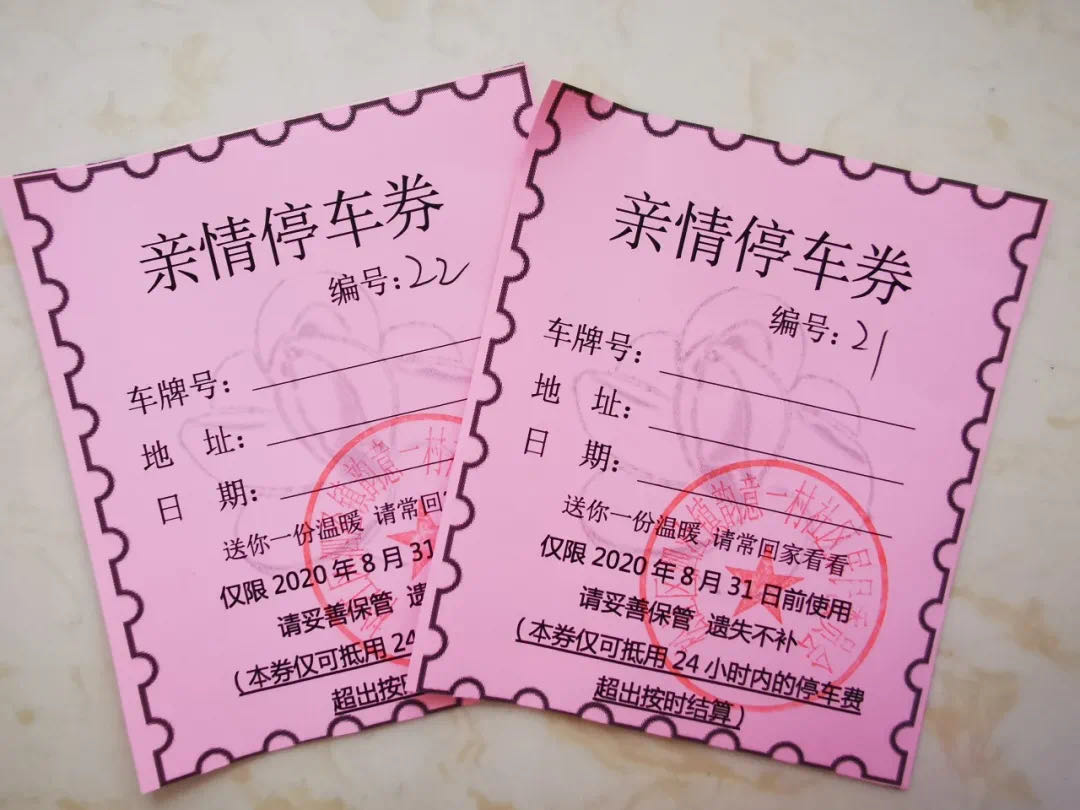 亲情停车券
编号:22
车牌号:
地 址:
日 期:
送你一份温暖 请常回
仅限2020年8月31
请妥善保管 遗
(本券仅可抵用24
超出按
亲情停车券
编号:21
车牌号:
地 址:
日 期:
送你一份温暖 请常回家看看
仅限2020年8月31日前使用
请妥善保管 遗失不补
(本券仅可抵用24小时内的停车费
超出按时结算)
韵意一村社区居民委员会